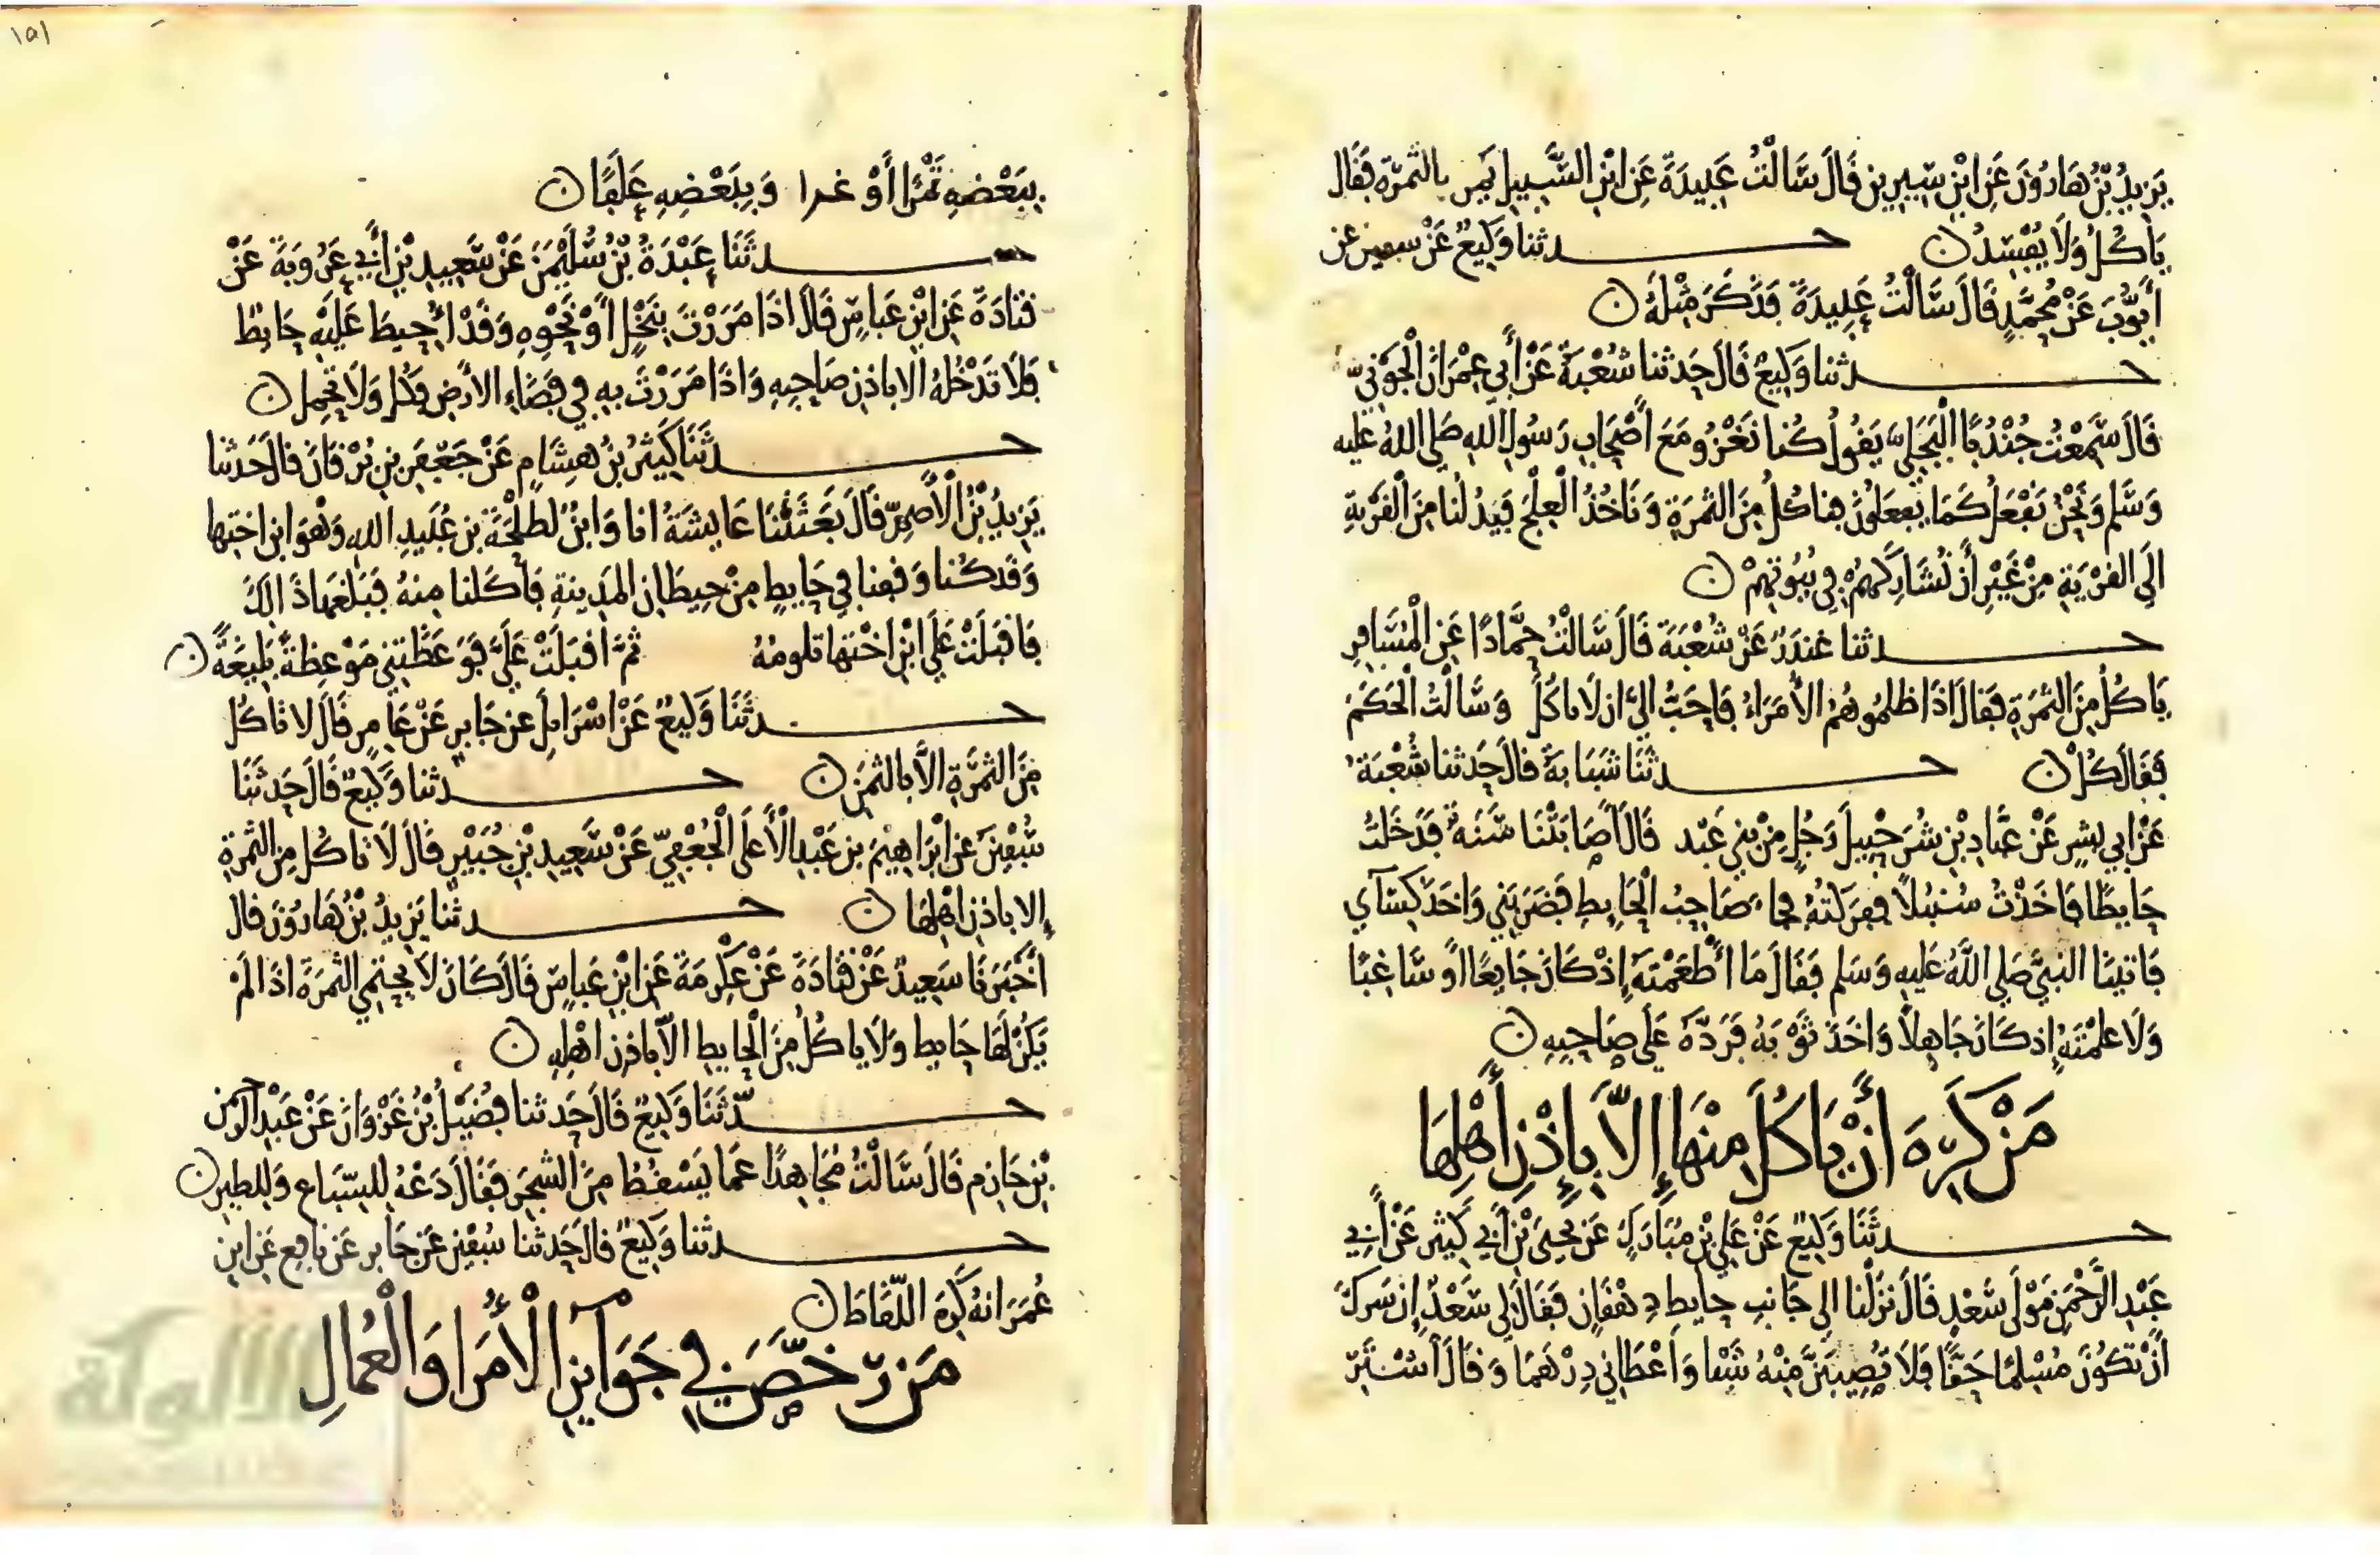 يَزِيدُ بْنُ هَارُوْنَ عَنِ ابْنِ سِيرِين قَالَ سَالْتُ عَبِيدَةَ عَنِ ابْنِ السَّبِيلِ يَمر بالثمَرَة فَقَال
يَاكُلُ وَلَا يُفْسِدُ ن حـــدثنا وَكِيعٌ عَنْ سفين عن
أَيُّوْبَ عَنْ مُحَمَّدٍ قَالَ سَالْتُ عَبِيدَةَ فَذَكَرَ مِثْلَهُ ن
حـــدثنا وَكِيعٌ قَالَ حَدثنا شُعْبَةُ عَنْ أَبِي عِمْرَانَ الْجَوْنِيّ
قَالَ سَمِعْتُ جُنْدُبًا الْبَجَلِيَّ يَقُولُ كُنا نَغْزُو مَعَ أَصْحَابِ رَسُولِ اللهِ صَلى اللهُ عَليه
وَسَلم وَنَحْنُ نَفْعَلُ كَمَا يفعلونَ فناكُلُ مِنَ الثمَرَةِ وَنَاخُذُ الْعِلْجَ فَيَدُلنا مِنَ الْقَرْيَةِ
الَى القرْيَةِ مِنْ غَيْرِ أَنْ نُشَارِكَهُمْ فِي بُيُوتِهِمْ ن
حـــدثنا غندَرٌ عَنْ شُعْبَة قَالَ سَالْتُ حَمَّادًا عَنِ الْمُسَافِرِ
يَاكُلُ مِنَ الثمَرَةِ فَقالَ اذَا ظلمُوهُمْ الأُمَرَاءُ فَاحَبُّ الَيَّ ان لَا ياكُلَ وَسَالْتُ الْحَكَمَ
فَقَالَ كُلْ ن حـــدثنَا شَبَابَةُ قالَ حَدثنا شُعْبَة
عَنْ ابي بشِرٍ عَنْ عَبَّادِ بْنِ شُرَحْبِيلَ رَجُلٍ مِنْ بَنِي غَبَد قَالَ أَصَابَتْنَا سَنَةٌ فَدَخَلتُ
حَايطًا فَاخَذْتُ سُنبُلًا ففركتُهُ فجاء صَاحِبُ الْحَايِطِ فَضَرَبَنِي وَاخَذَ كِسَآي
فَاتيتُ النبيَّ صَلى اللَّهُ عَليهِ وَسَلم فَقَالَ مَا أَطْعَمْتَهُ إِذْ كَانَ جَايعًا أَو سَاغبًا
وَلَا عَلمْتَهُ إِذ كَانَ جَاهِلًا وَاخَذ ثَوْبَهُ فَرَدَّهُ عَلَى صَاحِبِهِ ن
مَنْ كَرِهَ أَنْ يَاكُلَ مِنْهَا إِلَّا بِإِذْنِ أَهْلِهَا
حـــدثَنَا وَكِيعٌ عَنْ عَلي بْنِ مُبَارَكٍ عَن يحيَى بْنِ أَبِي كَثِيْرٍ عَنْ أَبِي
عَبْدِ الرَّحْمَنِ مَوْلَى سَعْدٍ قَالَ نزَلْنا الى جَانبِ حَايطِ دِهْقَانٍ فَقَالَ لِي سَعْدٌ إِنْ سَرك
أَنْ تَكُوْنَ مُسْلِمًا حَقًّا فَلَا تُصِيبَنَّ مِنْهُ شَيْا وَاَعْطَانِي دِرْهَمًا وَقَالَ أَشْتَرِ
بِبَعْضِهِ تَمْرًا أَوْ وَبِبَعْضِهِ عَلَفًا ن
حـــدثَنَا عَبْدَةُ بْنُ سُلَيْمَنَ عَنْ سَعِيدِ بْنِ أَبِي عَرُوبَةَ عَنْ
قتَادَةَ عَنِ ابْنِ عَباسٍ قَالَ اذَا مَرَرْتَ بِنَخْلٍ أَوْ نَحْوِهِ وَقَدْ أُحِيطَ عَلَيْهِ حَايطٌ
فَلَا تَدْخُلهُ الا باذنِ صَاحِبِهِ وَاذَا مَرَرْتَ بِهِ فِي فَضَاءِ الأرْضِ فكُل وَلَا تحْمِل ن
حـــدثَنَا كَثِيْرُ بْنُ هِشَامٍ عَنْ جَعْفَرِ بْنِ بُرْقَانَ قالَ حَدثنا
يَزِيدُ بْنُ الْأَصَمِّ قَالَ بَعَثَتْنَا عَايشَةُ انا وَابْنٌ لطَلْحَةَ بن عُبَيدِ اللهِ وَهْوَ ابن اختِها
وَقَد كُنا وَقعْنا فِي حَايطٍ مِنْ حِيطَانِ المَدِينةِ فَأَكَلنا مِنهُ فَبَلغهَا ذَالِكَ
فَاقبَلَتْ عَلَى ابْنِ اخْتِهَا تلومُهُ ثمَّ اقبَلَتْ عَلَيَّ فَوَعَظَتنِي مَوْعِظةً بَلِيغَةً ن
حـــدثَنَا وَكِيعٌ عَنْ اسْرَايلَ عن جَابِرٍ عَنْ عَامِرٍ قَالَ لَا تَاكُل
مِنَ الثمَرَةِ الَّا بالثمَنِ ن حـــدثنا وَكِيعٌ قَالَ حَدثَنَا
سُفْينُ عَن ابْرَاهِيمَ بن عَبْدِ الْأَعْلَى الْجُعْفِيّ عَنْ سَعِيدِ بْنِ جُبَيْرٍ قَالَ لَا تَاكُل مِنَ الثمَرَةِ
إِلا باذنِ اهْلِهَا ن حـــدثنا يَزِيدُ بْنُ هَارُوْنَ قال
أَخْبَرَنَا سَعِيدٌ عَنْ قتَادَةَ عَنْ عكرِمَةَ عَنِ ابْنِ عَباسٍ قَالَ كَانَ لَا يحْتَمِي الثمَرَةَ اذَا لَمْ
يَكُنْ لَهَا حَايط وَلَا ياكُلُ مِنَ الْحَايِطِ الَّا باذنِ اهْلِهِ ن
حـــدّثَنَا وَكِيعٌ قَالَ حَدثنا فُضَيْلُ بْنُ غَزْوَانَ عَنْ عَبْدِ الرَّحْمَن
بْنِ حَازِم قَالَ سَالْتُ مُجَاهِدًا عَمَّا يَسْقُطُ مِنَ الشَجَرِ فَقَالَ دَعْهُ لِلسِّبَاعِ وَلِلطيْرِ ن
حـــدثنا وَكِيعٌ قالَ حَدثنا سُفيْن عَنْ جَابر عَن نافِعٍ عَنِ ابْنِ
عُمَرَ انهُ كَرِهَ اللُّقَاطَ ن
مَنْ رخَّصَ فِي جَوَآيزِ الْأُمَرَا وَالْعُمالِ
١٥١
الألوكة